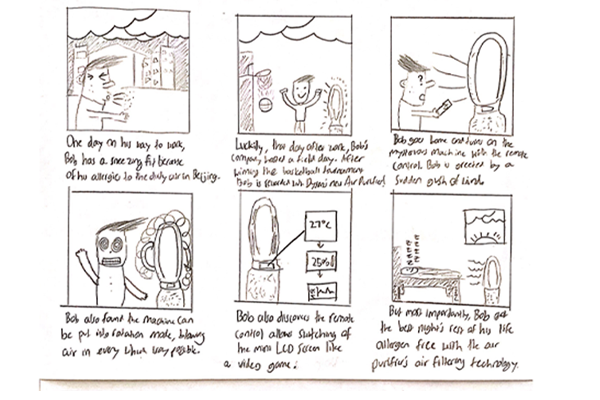 One day on his way to work,
Bob has a sneezing fit because
of his allergies to the dirty air in Beijing.
Luckily, that day after work, Bob's
company hosted a field day. After
winning the basketball tournament
Bob is rewarded with Dyson's new Air Purifier.
Bob goes home and turns on the
mysterious machine with the remote
control. Bob is greeted by a
sudden gush of wind.
Bob also found the machine can
be put into rotation mode, blowing
air in every which way possible.
27°C
Bob also discovers the remote
control allows switching of
the mini LCD screen like
a video game.
But most importantly, Bob got
the best night's rest of his life
allergen free with the air
purifier's air filtering technology.